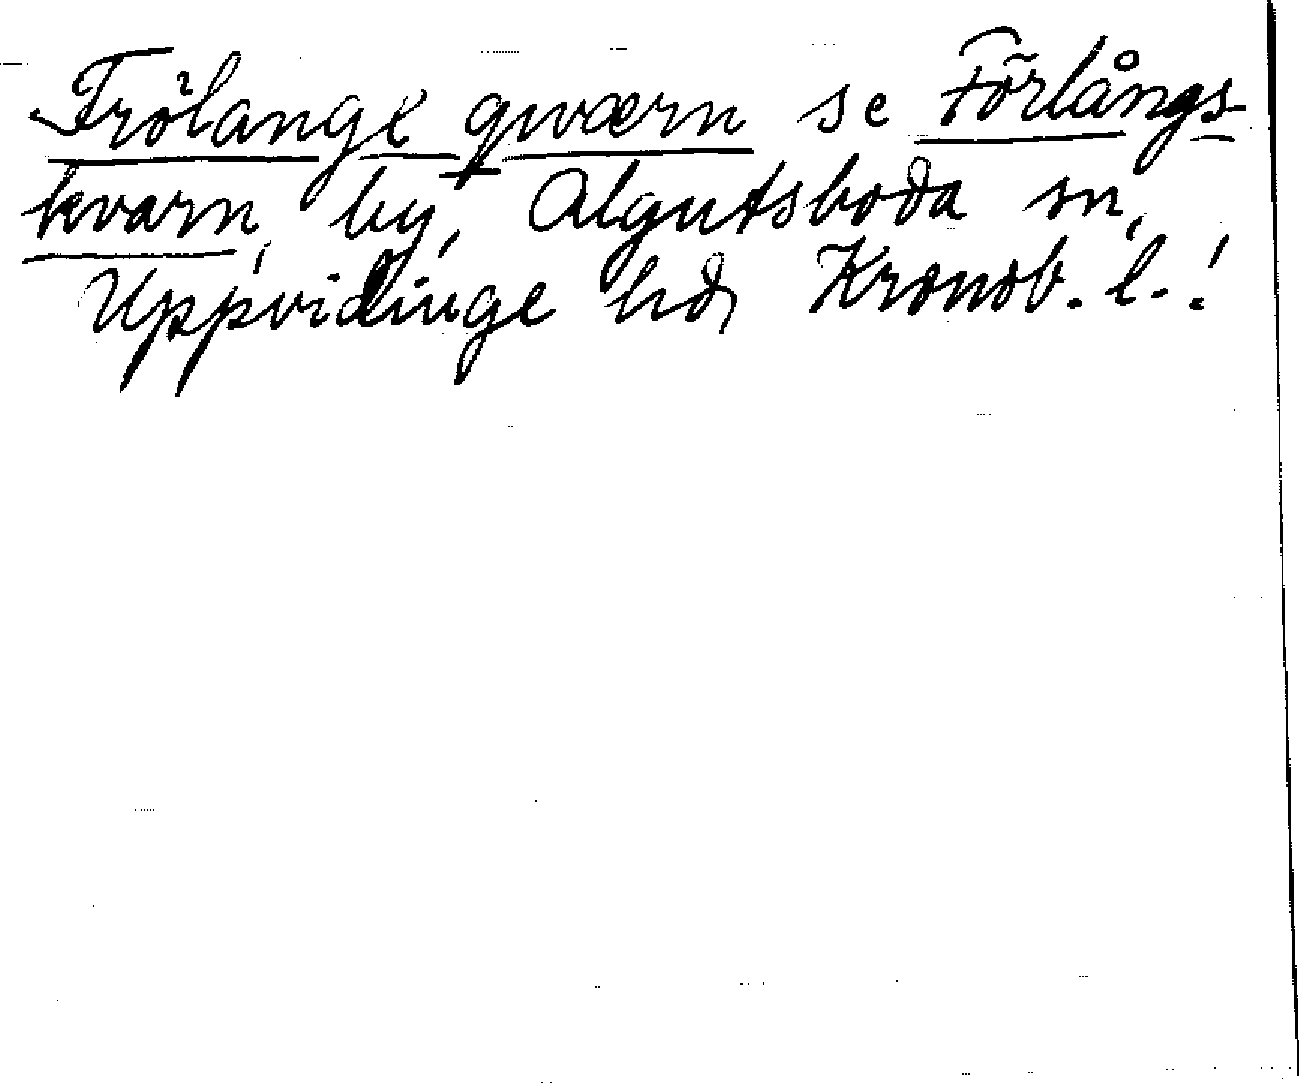 Frölange qwærn se Förlångs-
kvarn, by, Algutsboda sn,
Uppvidinge hd, Kronob. l.!